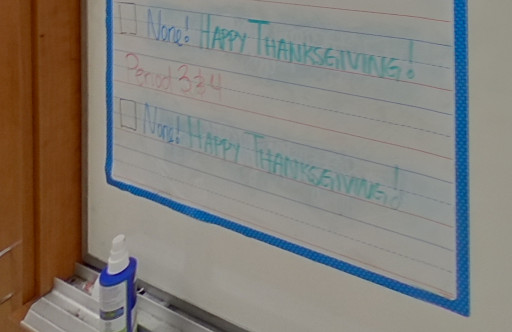 None! HAPPY THANKSGIVING!
Period 3&4
None! HAPPY THANKSGIVING!